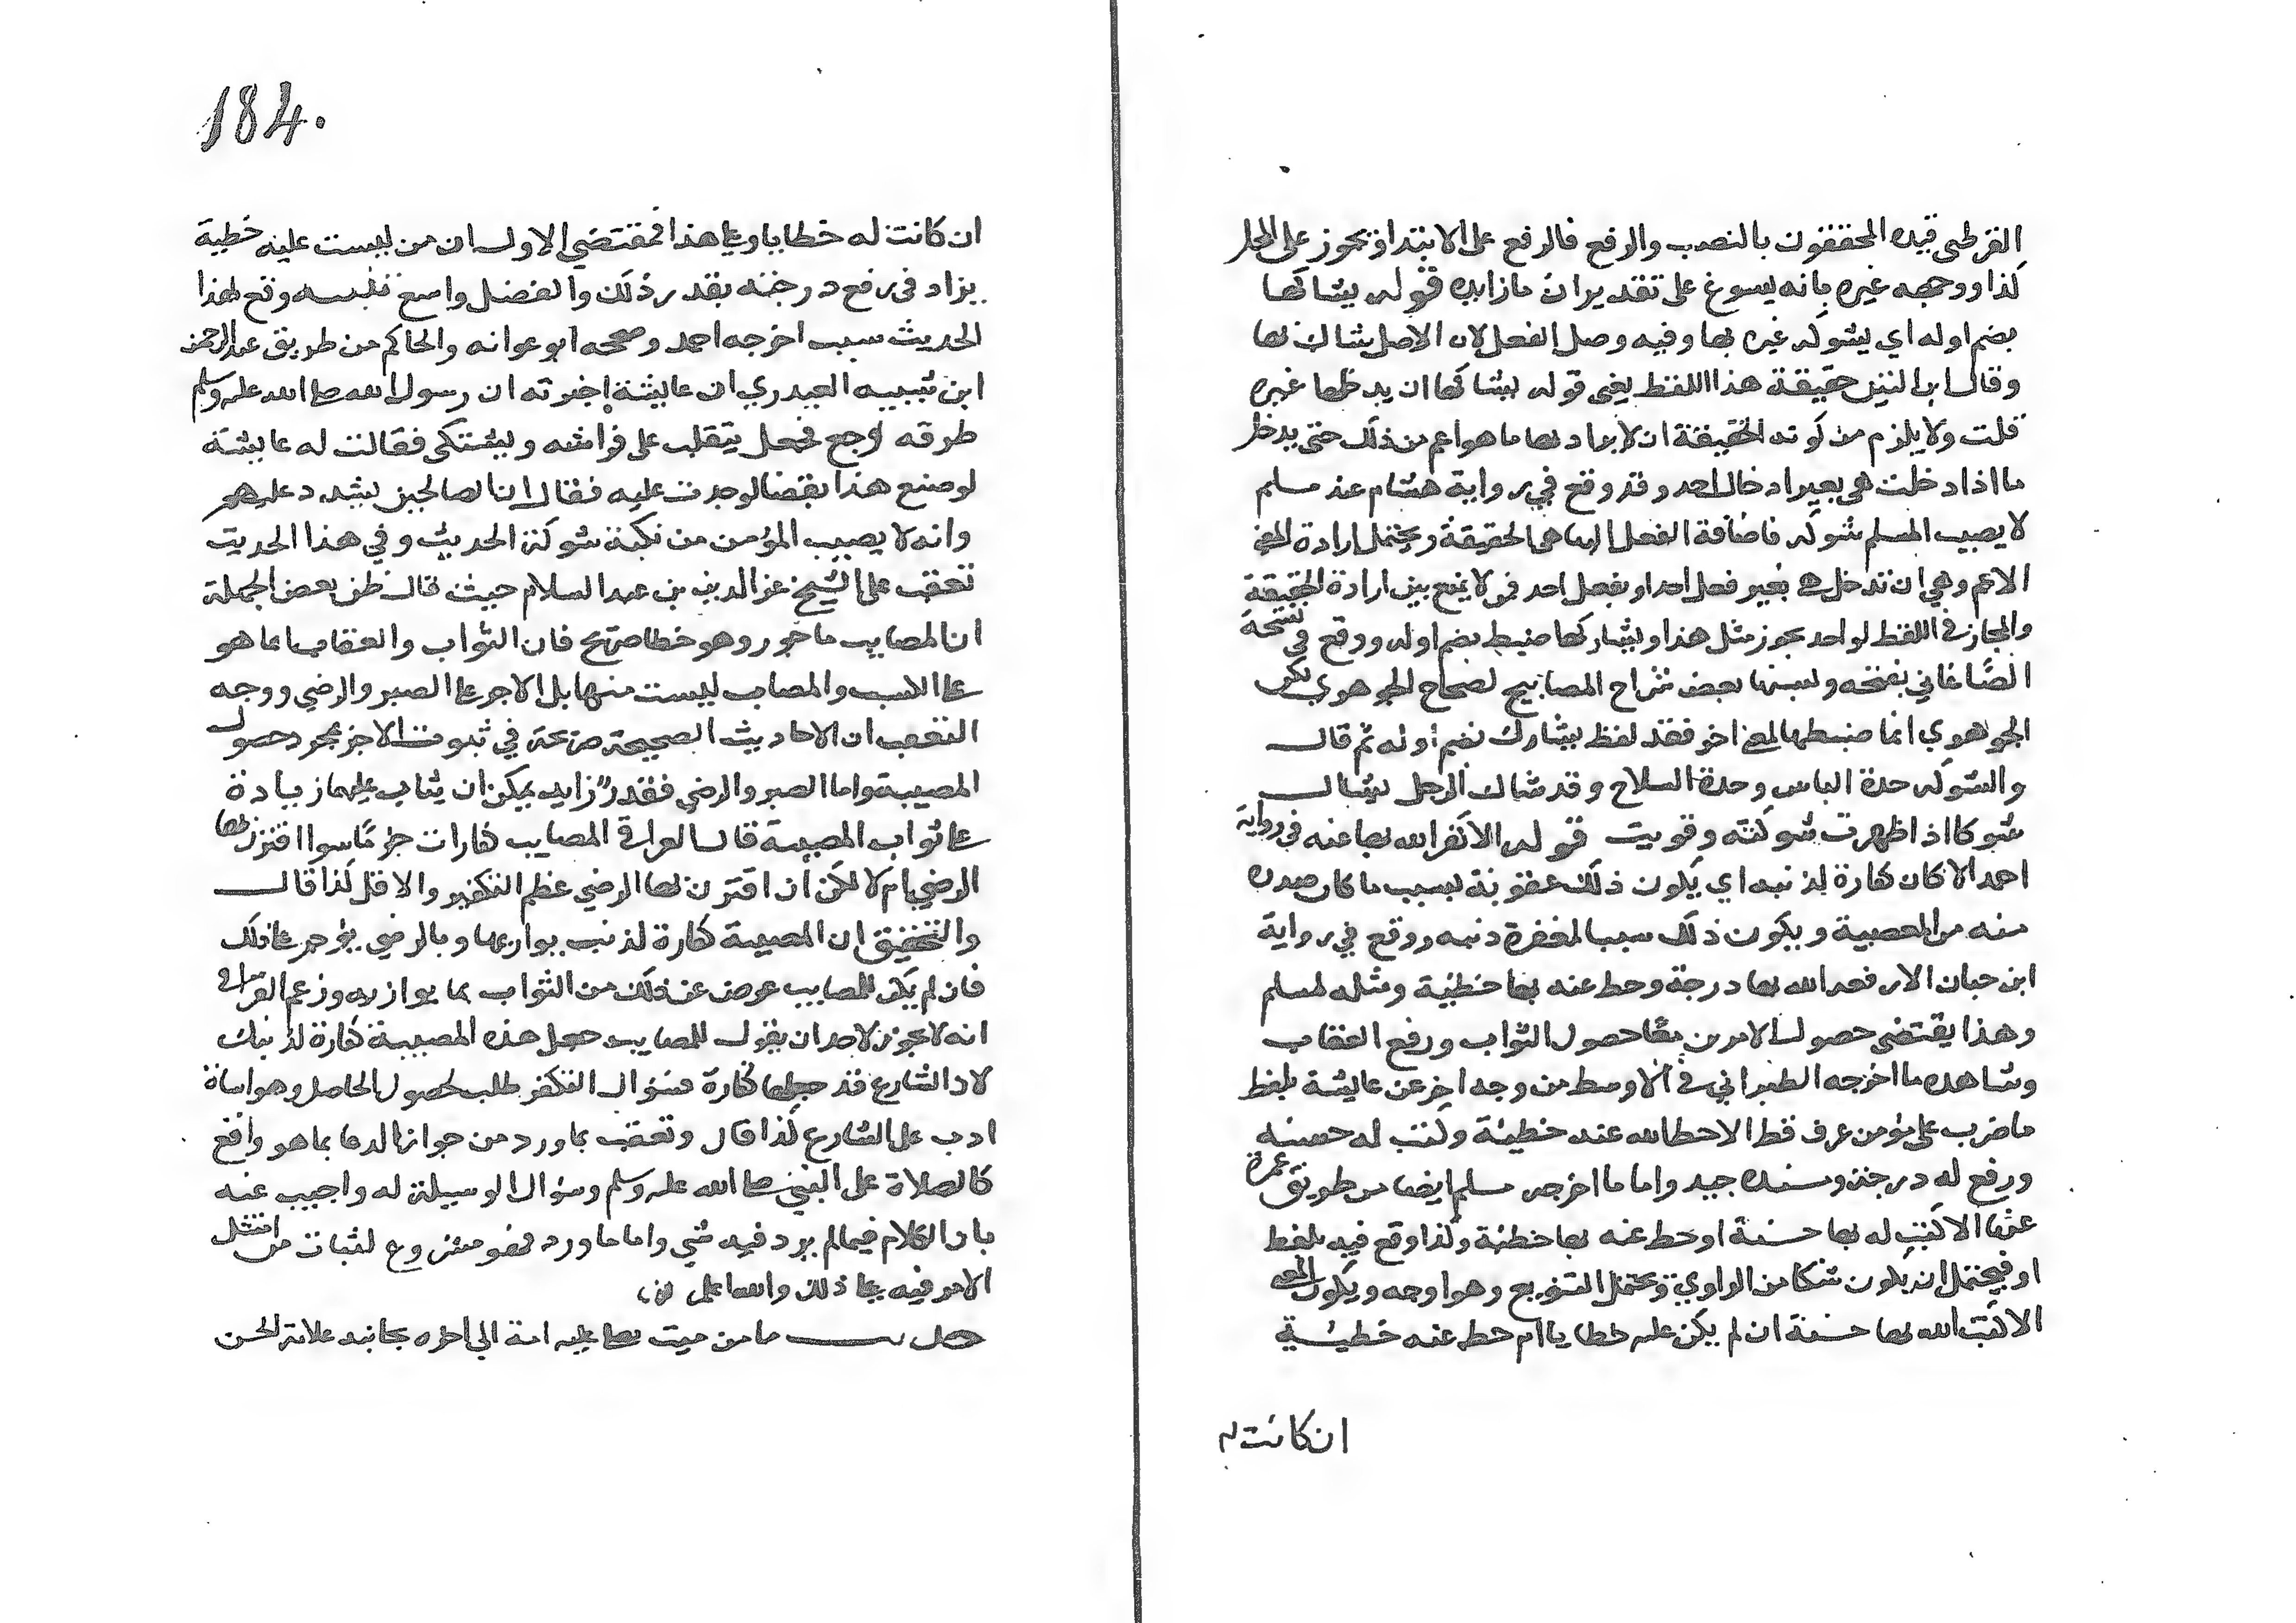 القرطبي قيده المحققون بالنصب والرفع فالرفع على الابتدا ويجوز على المحل
كذا ووجهه غيره بانه يسوغ على تقدير ان ما زايده قوله يشاكها
بضم اوله اي يشوكه غيره بها وفيه وصل الفعل لان الاصل يشاك بها
وقال ابن التين حقيقة هذا اللفظ يعني قوله يشاكها ان يدخلها غيره
قلت ولا يلزم من كونه الحقيقة ان لا يراد بها ما هو اعم من ذلك حتى يدخل
ما اذا دخلت هي بغير ادخال احد وقد وقع في رواية هشام عند مسلم
لا يصيب المسلم شوكه فاضافة الفعل اليها هي الحقيقة ويحتمل ارادة المعنى
الاعم وهي ان تدخل هي بغير فعل احد او بفعل احد فمن لا يمنع بين ارادة الحقيقة
والمجاز في اللفظ لواحد يجوز مثل هذا ويشاركها ضبط بضم اوله ووقع في نسخة
الصغاني بفتحه ونسبها بعض شراح المصابيح لصحاح الجوهري لكن
الجوهري انما ضبطها لمعنى اخر فقد لفظ يشارك بضم اوله ثم قال
والشوكه حدة الباس وحدة السلاح وقد شاك الرجل يشاك
شوكا اذا ظهرت شوكته وقويت قوله الا كفر الله بها عنه في رواية
احمد الا كان كفارة لذنبه اي يكون ذلك عقوبة بسبب ما كان صدر
منه من المعصية ويكون ذلك سببا لمغفرة ذنبه ووقع في رواية
ابن حبان الا رفعه الله بها درجة وحط عنه بها خطيئة ومثله لمسلم
وهذا يقتضي حصول الامرين معا حصول الثواب ورفع العقاب
وشاهده ما اخرجه الطبراني في الاوسط من وجه اخر عن عايشة بلفظ
ما ضرب على مؤمن عرق قط الا حط الله عنه خطيئة وكتب له حسنه
ورفع له درجة وسنده جيد واما ما اخرجه مسلم ايضا من طريق عمرة
عنها الا كتب له بها حسنة او حط عنه بها خطئة وكذا وقع فيه بلفظ
او فيحتمل ان يكون شكا من الراوي ويحتمل التنويع وهو اوجه ويكون المعنى
الا كتب الله بها حسنة ان لم يكن عليه خطايا ام حط عنه خطيئة
ان كانت له
184.
ان كانت له خطايا وعلى هذا فمقتضي الاول ان من ليست عليه خطية
يزاد في رفع درجته بقدر ذلك والفضل واسع تنبيه وقع لهذا
الحديث سبب اخرجه احمد وصححه ابو عوانه والحاكم من طريق عبد الرحمن
ابن شيبه العبدري ان عايشة اخبرته ان رسول الله صلى الله عليه وسلم
طرقه وجع فجعل يتقلب على فراشه ويشتكي فقالت له عايشة
لو صنع هذا بعضنا لوجدت عليه فقال ان الصالحين يشدد عليهم
وانه لا يصيب المؤمن من نكبة شوكة الحديث وفي هذا الحديث
تعقب على الشيخ عز الدين بن عبد السلام حيث قال ظن بعض الجهلة
ان المصايب ماجور وهو خطا صريح فان الثواب والعقاب انما هو
على الكسب والمصايب ليست منها بل الاجر على الصبر والرضي ووجه
التعقب ان الاحاديث الصحيحة صريحة في ثبوت الاجر بمجرد حصول
المصيبة واما الصبر والرضي فقدر زايد يمكن ان يثاب عليهما زيادة
على ثواب المصيبة قال القرافي المصايب كفارات جزما سوا اقترن بها
الرضي ام لا لكن ان اقترن بها الرضي عظم التكفير والا قل كذا قال
والتحقيق ان المصيبة كفارة لذنب يوازيها وبالرضي يؤجر على ذلك
فان لم يكن للمصايب عوض عن ذلك من الثواب بما يوازيه وزعم القرافي
انه لا يجوز لاحد ان يقول للمصايب جعل هذه المصيبة كفارة لذنبك
لان الشارع قد جعلها كفارة فسؤال التكفير طلب لحصول الحاصل وهو اساة
ادب على الشارع كذا قال وتعقب بما ورد من جواز الدعا بما هو واقع
كالصلاة على النبي صلى الله عليه وسلم وسؤال الوسيلة له واجيب عنه
بان الكلام فيما لم يرد فيه شي واما ما ورد فهو مشروع لثبات من امتثل
الامر فيه على ذلك والله اعلم
ما من ميت يصلي عليه امة الى اخره بجانبه علامة الحسن